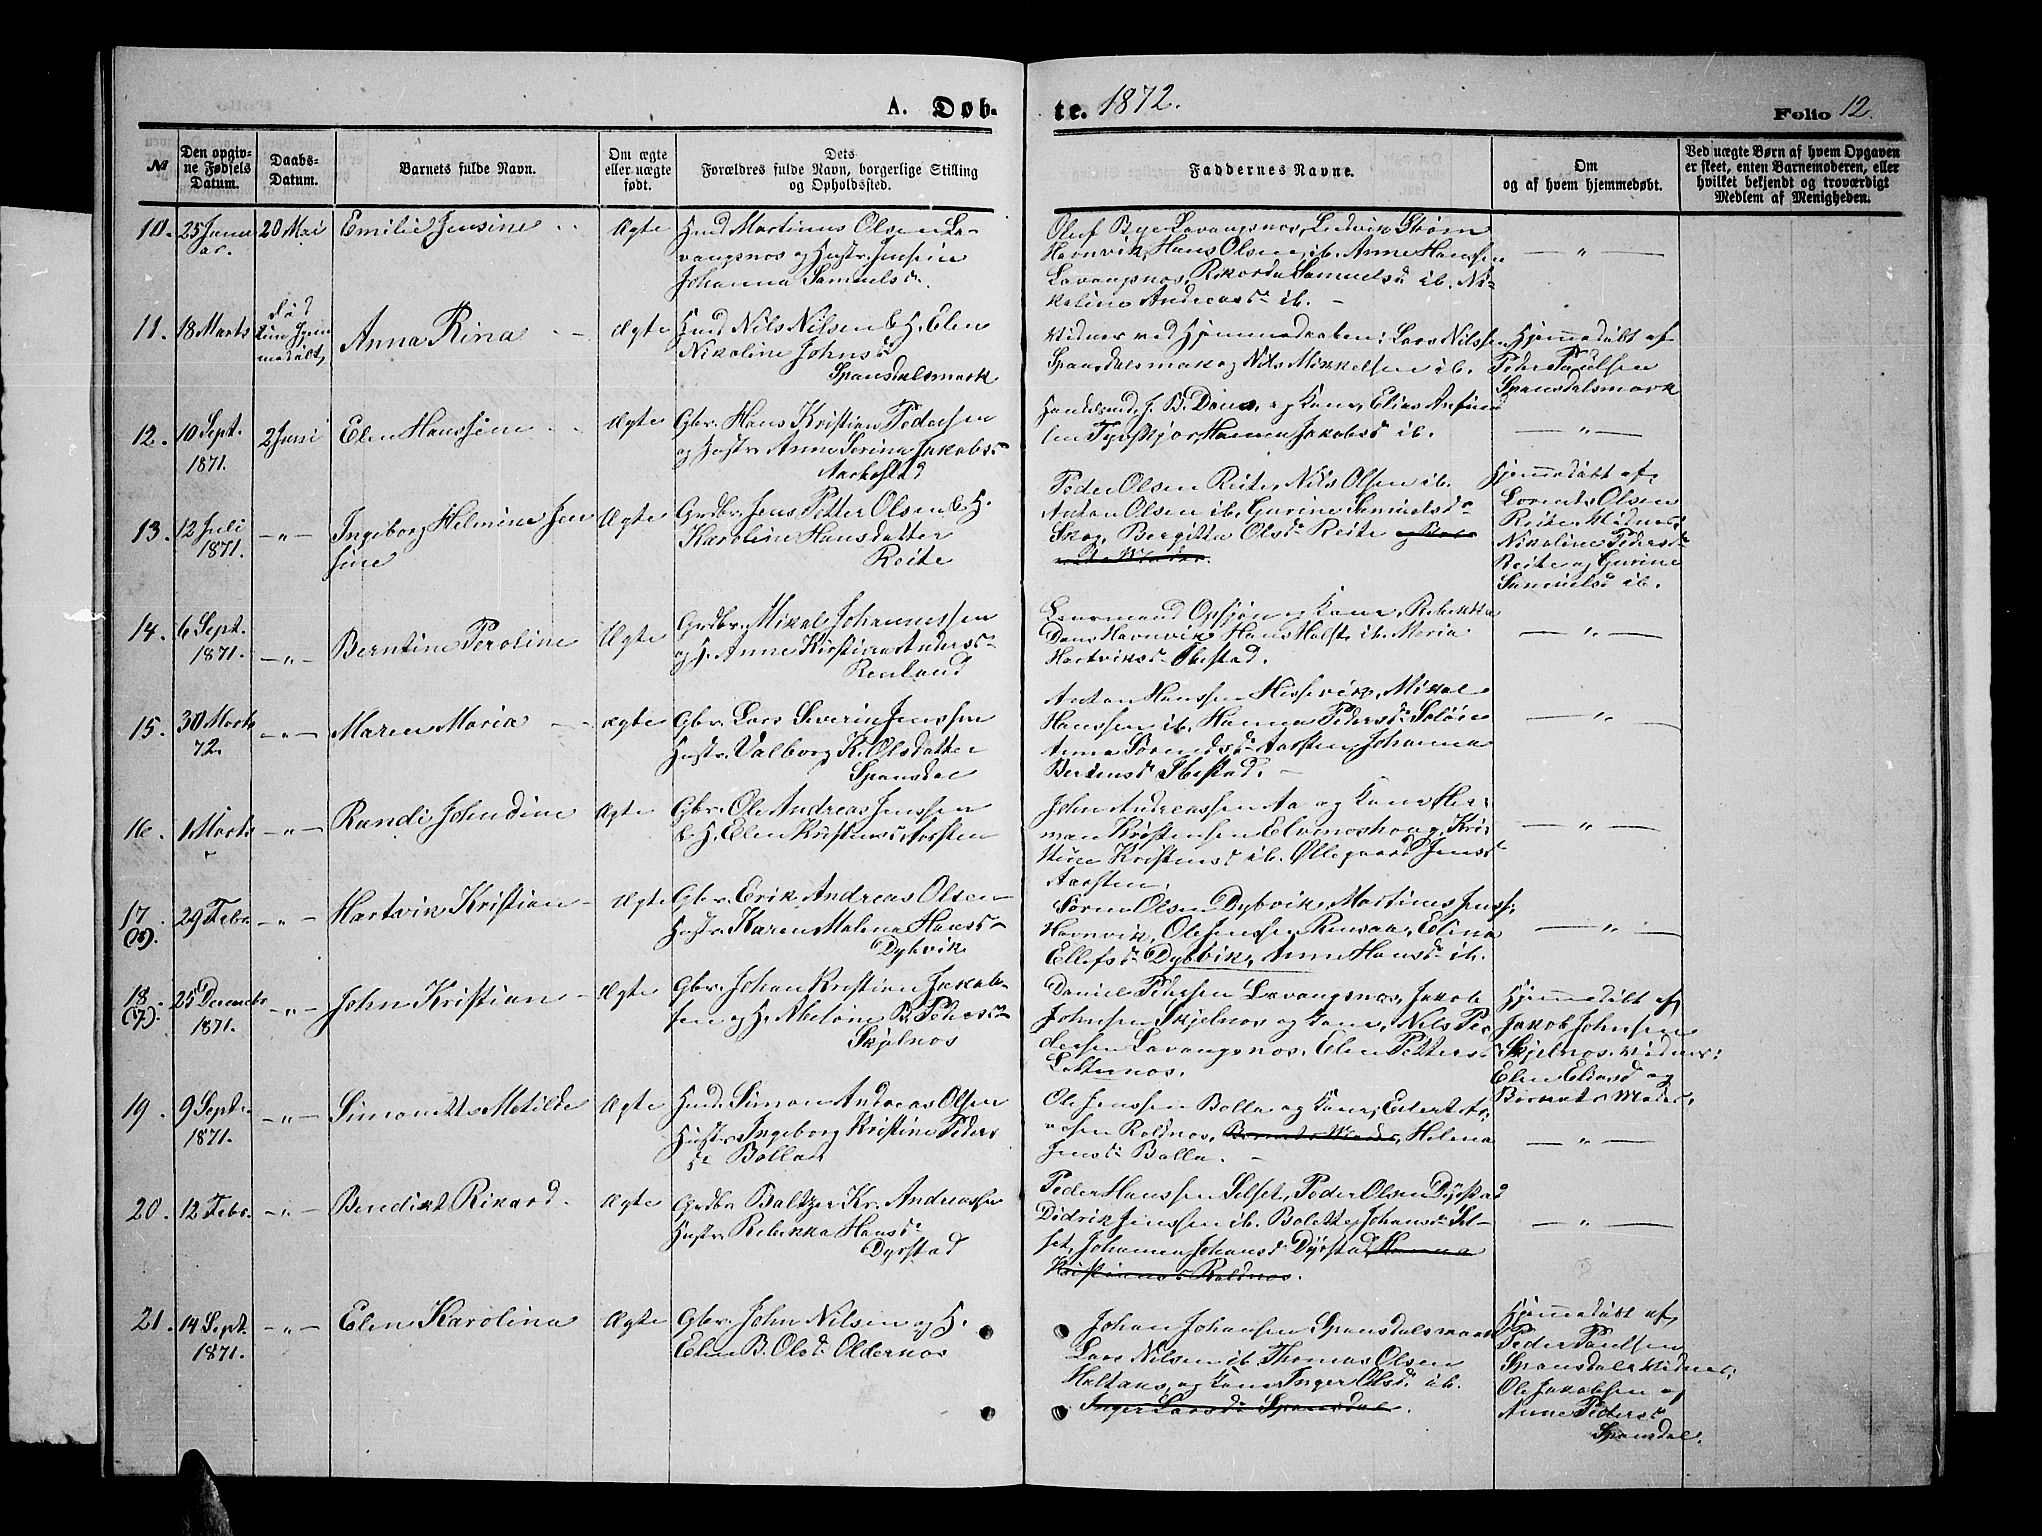 A. Døb-
te. 1872.
Folio 12.
№
Den opgiv-
ne Fødsels
Datum.
Daabs-
Datum.
Barnets fulde Navn.
Om ægte
eller uægte
født.
Dets
Forældres fulde Navn, borgerlige Stilling
og Opholdssted.
Faddernes Navne.
Om
og af hvem hjemmedøbt.
Ved uægte Børn af hvem Opgaven
er skeet, enten Barnemoderen, eller
hvilket bekjendt og troværdigt
Medlem af Menigheden.
10. 25 Janu
ar. 20 Mai Emilie Jensine Ægte
Hmd Martinus Olsen La-
vangsnos og Hustr. Jensine
Johanna Samuelsdr.
Oluf Bye Lavangsnos, Ludvik Strøm
Havnvik, Hans Olsen ib. Anne Hansen
Lavangsnos, Rikarda Samuelsd ib. Ni-
koline Andreasd ib. -
11. 18 Marts
død
kun hjem
medøbt,
Anna Rina Ægte
Hmd Nils Nilsen & H. Elen
Nikoline Johnsd
Spansdalsmark
Vidner ved Hjemmedaaben: Lars Nilssen
Spansdalsmak og Nils Mikkelsen ib.
Hjemmedøbt af
Peder Paulsen
Spansdalsmark
12. 10 Sept.
1871. 2 Juni Elen Hanssine Ægte
Gbr. Hans Kristian Pedersen
og Hustr Anne Serine Jakobs-
Aarbostad
Handelsmd J. B. Dons, og Kone, Elias
sen Tyvskjør, Hannen Jakobsd ib.
13. 12 Juli
1871. -"- Ingeborg Helmine Jen
sine Ægte
Grdbr. Jens Petter Olsen & H.
Karoline Hansdatter
Reite
Peder Olsen Reite, Nils Olsen ib.
Anton Olsen ib. Gurine Samuelsd
Skog, Bergitta Olsd Reite
Hjemmedøbt af
Lorents Olsen
Reite. Vidner:
Nikoline Pedersd
Reite og Gurine
Samuelsd ib.
14. 6 Sept.
1871. -"- Berntine Peroline Ægte
Grdbr. Mikal Johannessen
og H. Anne Kirstine Andersd
Renland
Lensmand Opsjøn og Kone, Rebekka
Dons Havnvik, Hans Holst ib. Maria
Hartviksd Ibestad.
15. 30 Marts
72. -"- Maren Maria Ægte
Gbr. Lars Severin Jenssen
Hustr. Valborg K. Olsdatter
Spansdal
Anton Hanssen Hessevik, Mikal
Hanssen ib. Hanna Pedersd
Anna Aarsten, Johanna
Berteusd Ibestad. -
16. 1 Marts -"- Randi Johndine Ægte
Gbr. Ole Andreas Jenssen
& H. Elen Kristensd Aarsten
John Andreassen Aa og Kone Her-
man Kristensen Elvenoshaug, Kri-
stine Kristensd ib. Ollegaard Jensd
Aarsten,
17
29 Febr -"- Hartvik Kristian Ægte
Gbr. Erik Andreas Olsen
Hustr. Karen Malena Hansd
Dybvik
Søren Olsen Dybvik, Martinus Jenss:
Havnvik, Ole Jenssen Rensaa, Elina
Ellefsd Dybvik, Anne Hansd ib.
18
(7). 25 Decembr
1871. -"- John Kristian Ægte
Gbr. Johan Kristian Jakob-
sen og H. Abelone B. Pedersd
Skjelnos
Daniel Pedersen Lavangsnos, Jakob
Johnsen Skjelnos og Kone, Nils Pe-
dersen Lavangsnos, Elen Petters
Hjemmedøbt af
Jakob Johnsen
Skjelnos. Vidner:
Elen Eliasd og
Barnets Moder,
19. 9 Sept.
1871. -"- Simonette Matilde Ægte
Hmd. Simon Andreas Olsen
Hustr. Ingeborg Kristine Peders
d. Bollan
Ole Jenssen Bolla og Kone, Edert
Roldnos, Barnets Moder, Helena
Jensd Bolla. -
20. 12 Febr. -"- Benedikt Rikard Ægte
Grdbr Baltzer Kr. Andreassen
Hustr. Rebekka Hansd
Dyrstad
Peder Hanssen Selset, Peder Olsen Dyrstad
Didrik Jenssen ib. Bolette Johansd Sel-
set, Johanna Johansd Dyrstad, Hanna
Kristiansd Roldnos.
21. 14 Sept.
1871. -"- Elen Karolina Ægte
Gbr. John Nilsen og H.
Elen B. Olsd Oldernos
Johan Johansen Spansdalsmark
Lars Nilsen ib. Thomas Olsen
og Kone Inger Olsd ib.
Inger Larsd Spansdal.
Hjemmedøbt af
Peder Paulsen
Spansdal. Vidner:
Ole Jakobsen og
Anne Pedersd
Spansdal.